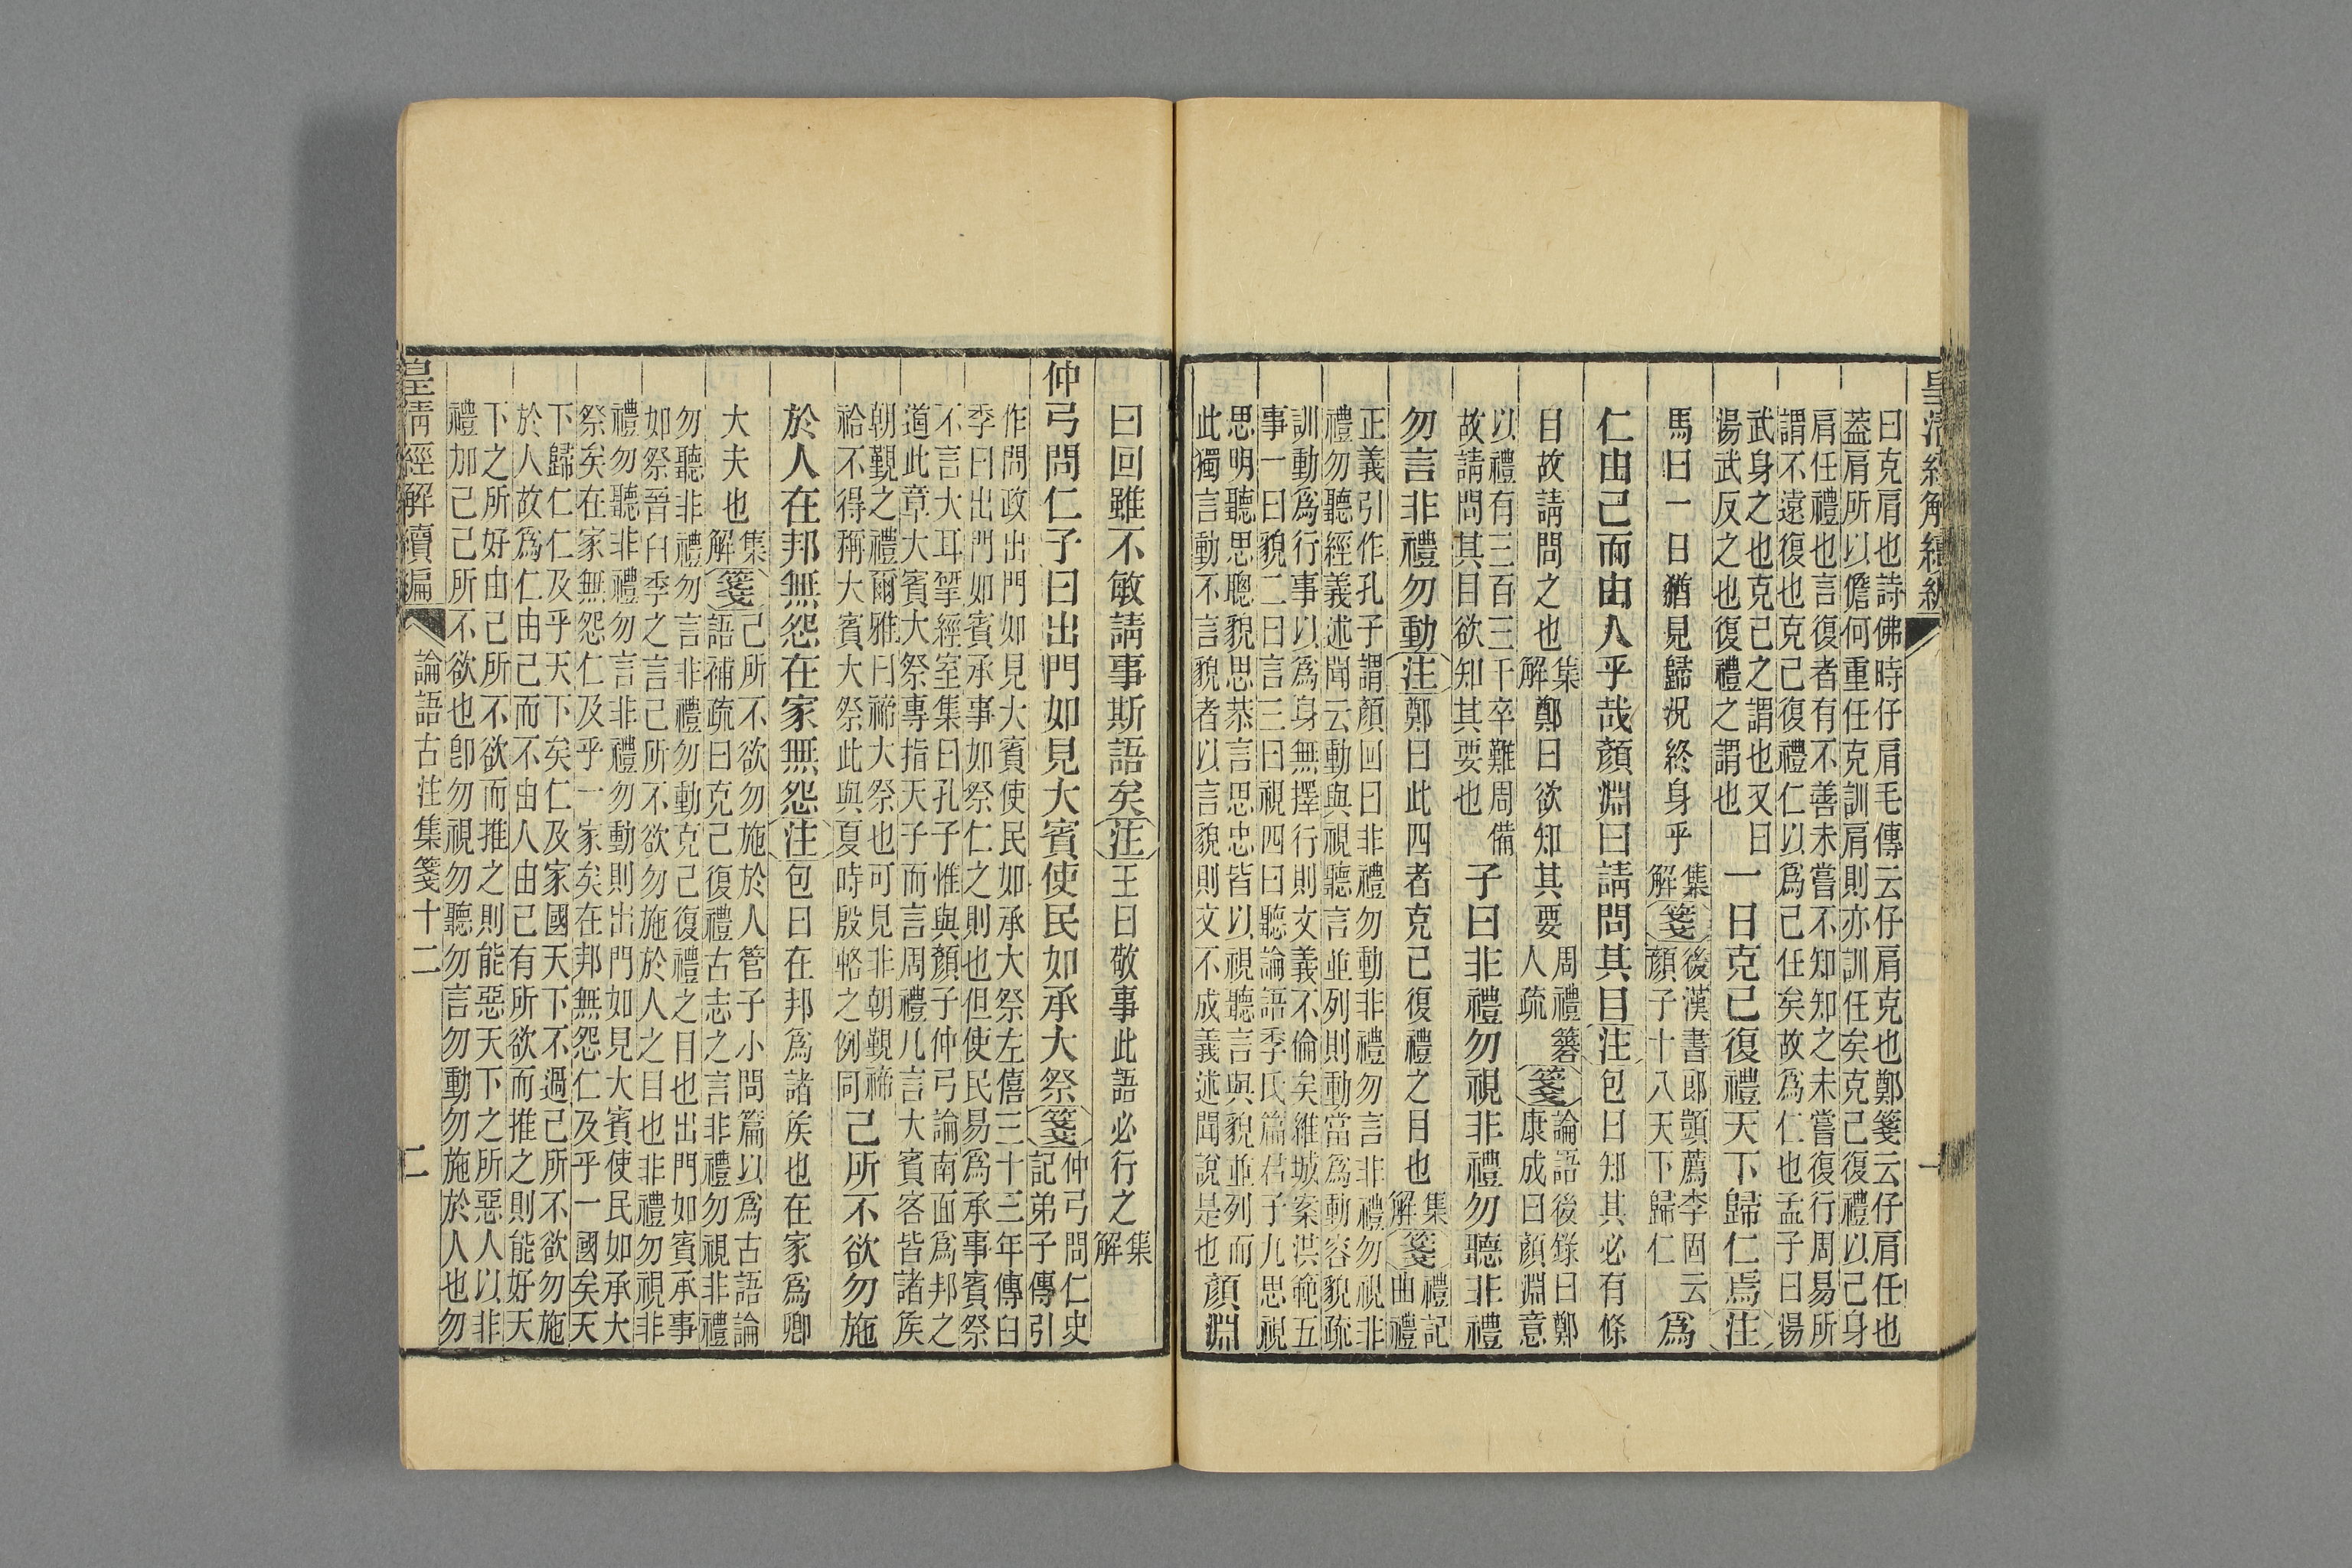 皇清經解續編 一
曰克肩也詩佛時仔肩毛傳云仔肩克也鄭箋云仔肩任也
蓋肩所以儋何重任克訓肩則亦訓任矣克己復禮以己身
肩任禮也言復者有不善未嘗不知知之未嘗復行周易所
謂不遠復也克己復禮仁以爲己任矣故爲仁也孟子曰湯
武身之也克己之謂也又曰
湯武反之也復禮之謂也
一日克己復禮天下歸仁焉注
馬曰一日猶見歸況終身乎集解箋
後漢書郞顗薦李固云
顏子十八天下歸仁
爲
仁由己而由人乎哉顏淵曰請問其目注包曰知其必有條
目故請問之也集解鄭曰欲知其要
周禮簭
人疏
箋
論語後錄曰鄭
康成曰顏淵意
以禮有三百三千卒難周備
故請問其目欲知其要也
子曰非禮勿視非禮勿聽非禮
勿言非禮勿動注鄭曰此四者克己復禮之目也集解箋
禮記
曲禮
正義引作孔子謂顏回曰非禮勿動非禮勿言非禮勿視非
禮勿聽經義述聞云動與視聽言並列則動當爲動容貌疏
訓動爲行事以爲身無擇行則文義不倫矣維城案洪範五
事一曰貌二曰言三曰視四曰聽論語季氏篇君子九思視
思明聽思聰貌思恭言思忠皆以視聽言與貌並列而
此獨言動不言貌者以言貌則文不成義述聞說是也
顏淵
曰回雖不敏請事斯語矣注王曰敬事此語必行之集解
仲弓問仁子曰出門如見大賓使民如承大祭箋
仲弓問仁史
記弟子傳引
作問政出門如見大賓使民如承大祭左僖三十三年傳臼
季曰出門如賓承事如祭仁之則也但使民易爲承事賓祭
不言大耳揅經室集曰孔子惟與顏子仲弓論南面爲邦之
道此章大賓大祭專指天子而言周禮凡言大賓客皆諸矦
朝覲之禮爾雅曰禘大祭也可見非朝覲禘
祫不得稱大賓大祭此與夏時殷輅之例同
己所不欲勿施
於人在邦無怨在家無怨注包曰在邦爲諸矦也在家爲卿
大夫也集解箋
己所不欲勿施於人管子小問篇以爲古語論
語補疏曰克己復禮古志之言非禮勿視非禮
勿聽非禮勿言非禮勿動克己復禮之目也出門如賓承事
如祭晉臼季之言己所不欲勿施於人之目也非禮勿視非
禮勿聽非禮勿言非禮勿動則出門如見大賓使民如承大
祭矣在家無怨仁及乎一家矣在邦無怨仁及乎一國矣天
下歸仁仁及乎天下矣仁及家國天下不過己所不欲勿施
於人故爲仁由己而不由人由己有所欲而推之則能好天
下之所好由己所不欲而推之則能惡天下之所惡人以非
禮加己己所不欲也卽勿視勿聽勿言勿動勿施於人也勿
皇清經解續編 論語古注集箋十二 二